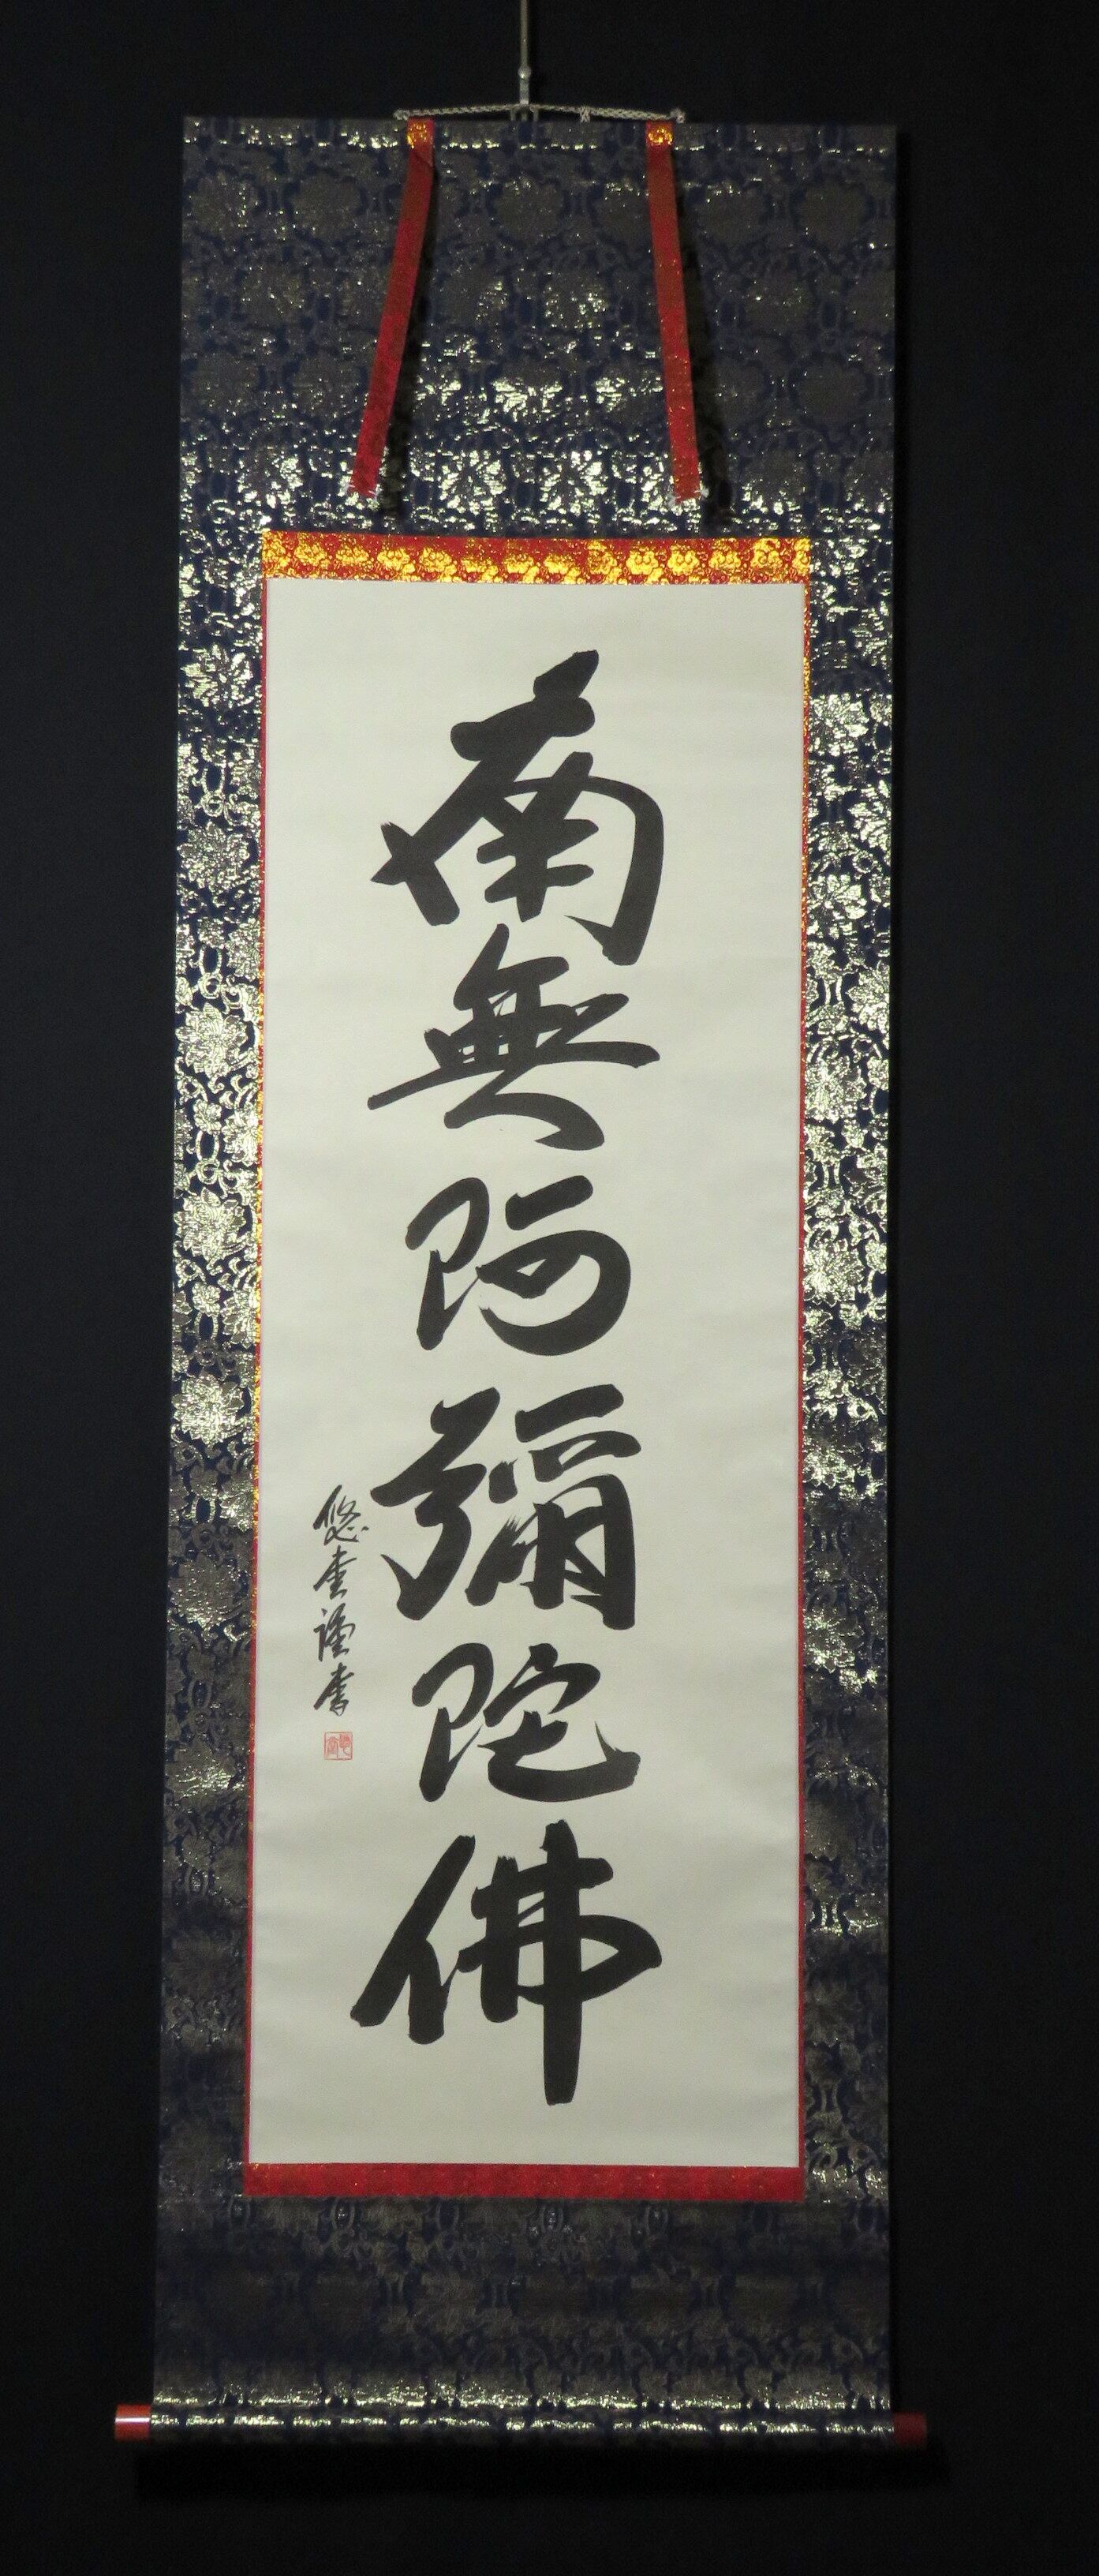 南無阿彌陀佛
悠堂謹書